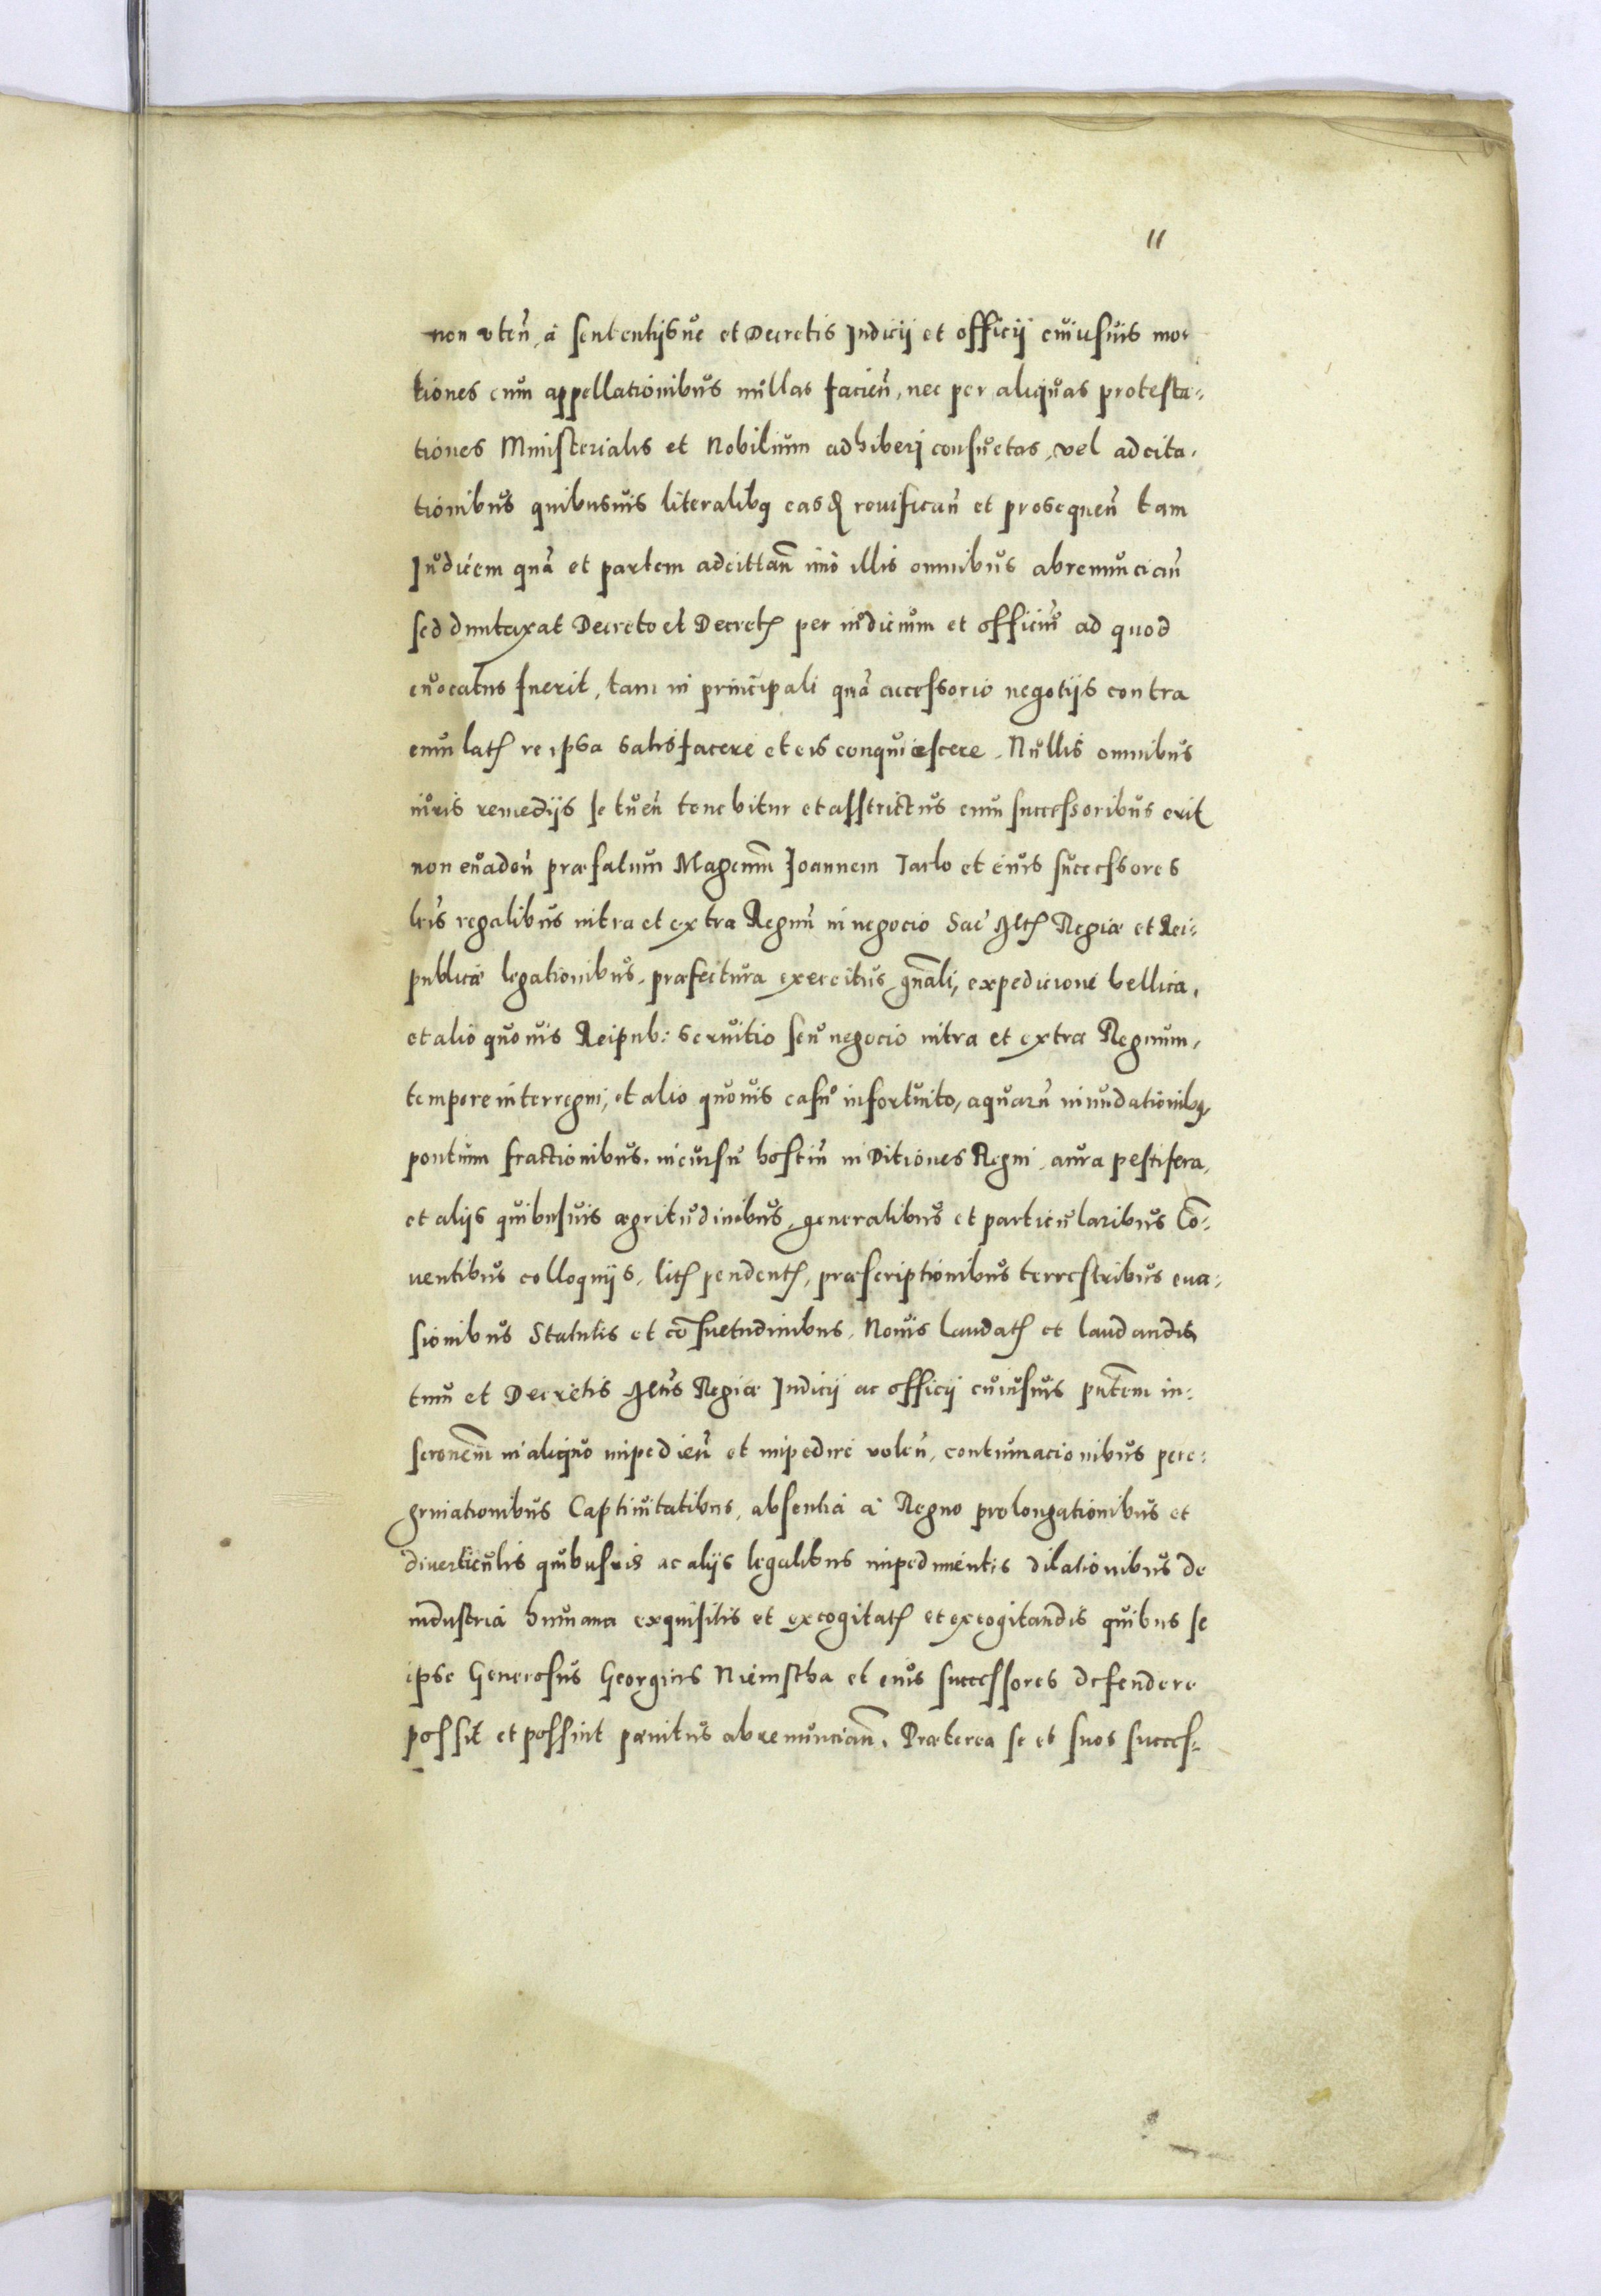 11
non vteñ, à sententijsue et Decretis Judicij et officij cuiusuis mo-
tiones cum appellationibus nullas facieñ, nec per aliquas protesta-
tiones Ministerialis et Nobilium adhiberj consuetas, vel adcita-
tionibus quibusuis literalibq easq rouificañ et prosequeñ tam
Judicem quā et partem adcittañ imò illis omnibus abrenunciañ
sed duntaxat Decreto et Decretꝭ per iudicium et officiū ad quod
euocatus fuerit, tam in principali quā accessorio negotijs contra
eum latꝭ re ipsa satisfacere et eis conquiescere. Nullis omnibus
iuris remedijs se tueñ tenebitur et asstrictus cum successoribus erit
non euadeñ præfatum Magcum Joannem Tarlo et eius successores
lrīs regalibus intra et extra Regnū in negocio Sac Mtꝭ Regiæ et Rei-
publicæ legationibus, præfectura exercitus gnāli, expedicione bellica,
et alio quouis Reipub: seruitio seu negocio intra et extra Regnum,
tempore interregni, et alio quouis casu infortuito, aquarū inundationibq,
pontium fractionibus, incursu hostiū in Ditiones Regni, aura pestifera,
et alijs quibusuis ægritudinibus, generalibus et particularibus Cō-
uentibus colloquijs, litꝭ pendentꝭ, præscriptionibus terrestribus eua-
sionibus Statutis et cōsuetudinibus, Nouis laudatꝭ et laudandis,
tum et Decretis Mtis Regiæ Judicij ac officij cuiusuis pñtem in-
scronem in aliquo impedieñ et impedire voleñ, contumacionibus pere-
grinationibus Captiuitatibus, absentia à Regno prolongationibus et
diuerticulis quibusuis ac alijs legalibus impedimentis dilationibus de
industria humana exquisitis et excogitatꝭ et excogitandis quibus se
ipse Generosus Georgius Niemstha et eius successores defendere
possit et possint pænitus abrenunciañ. Præterea se et suos succes-